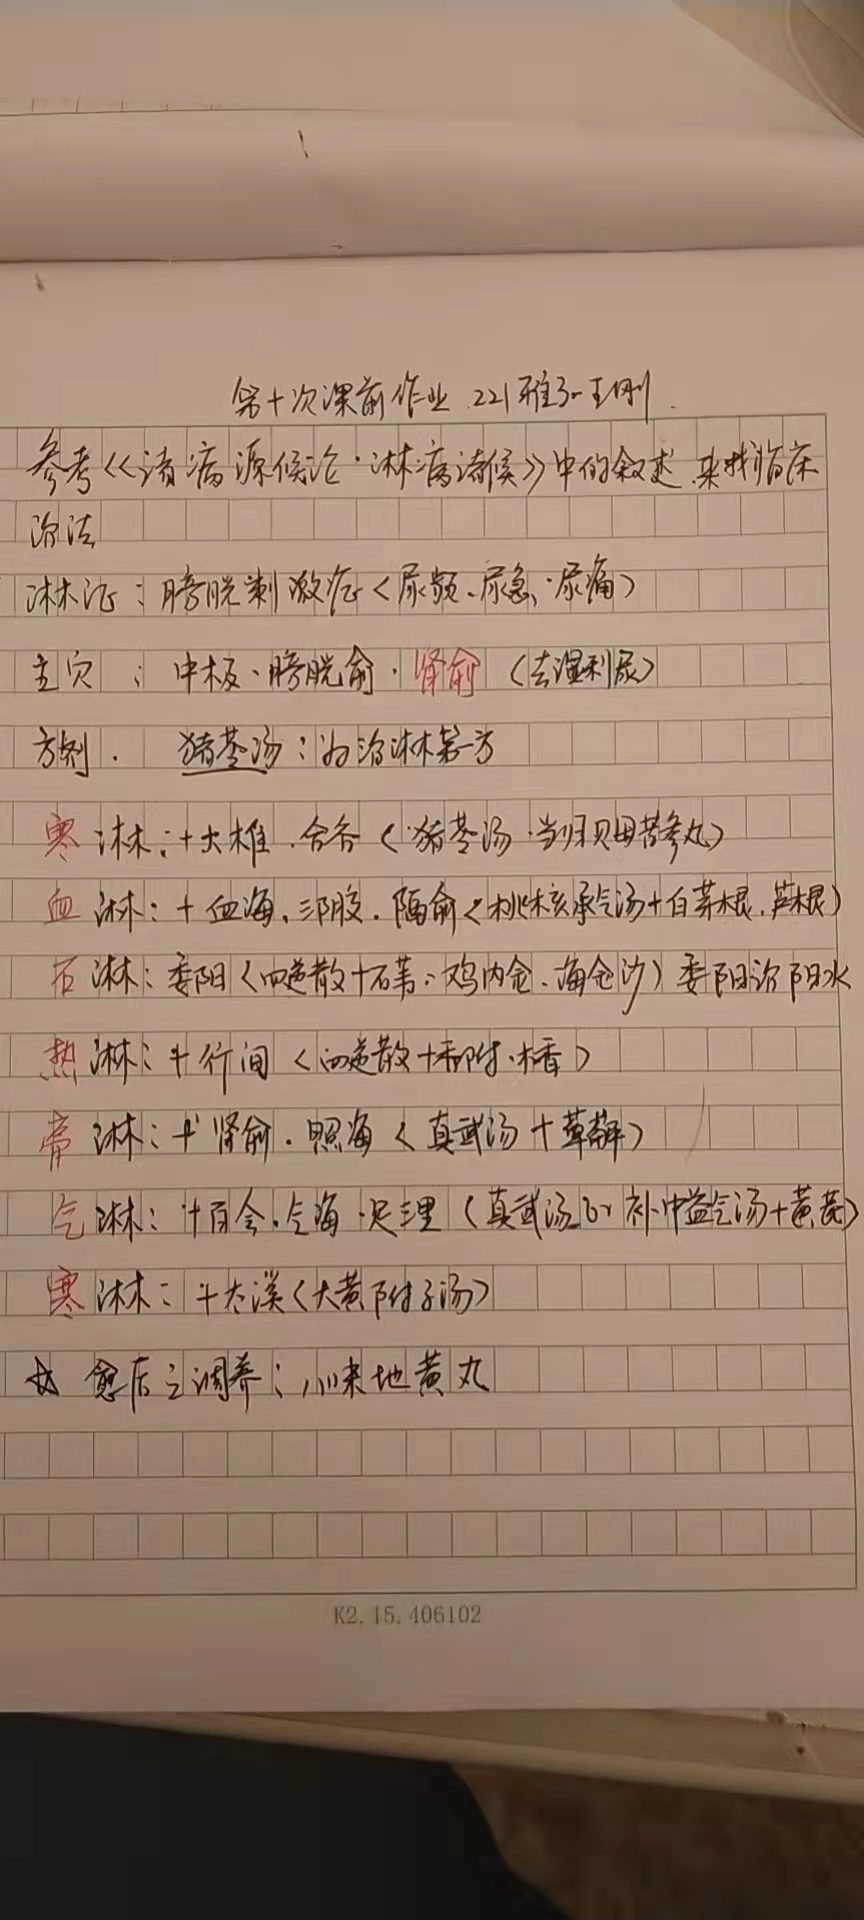 第十次课前作业 221 王刚
参考《诸病源候论·淋病诸候》中的叙述,来找临床
治法
淋证:膀胱刺激症(尿频、尿急、尿痛)
主穴:中极·膀胱俞·肾俞(去湿利尿)
方剂. 猪苓汤:为治淋第一方
寒淋:+大椎.合谷(猪苓汤·当归贝母苦参丸)
血淋:+血海、三阴胶.隔俞(桃核承气汤+白茅根.芦根)
石淋:委阳(四逆散+石苇、鸡内金、海金沙)委阳治阳水
热淋:+行间(四逆散+香附·木香)
膏淋:+肾俞.照海(真武汤+萆薢)
气淋:+百会.气海·足三里(真武汤or补中益气汤+黄芪)
寒淋:+太溪(大黄附子汤)
☆ 愈后之调养:八味地黄丸
K2.15.406102